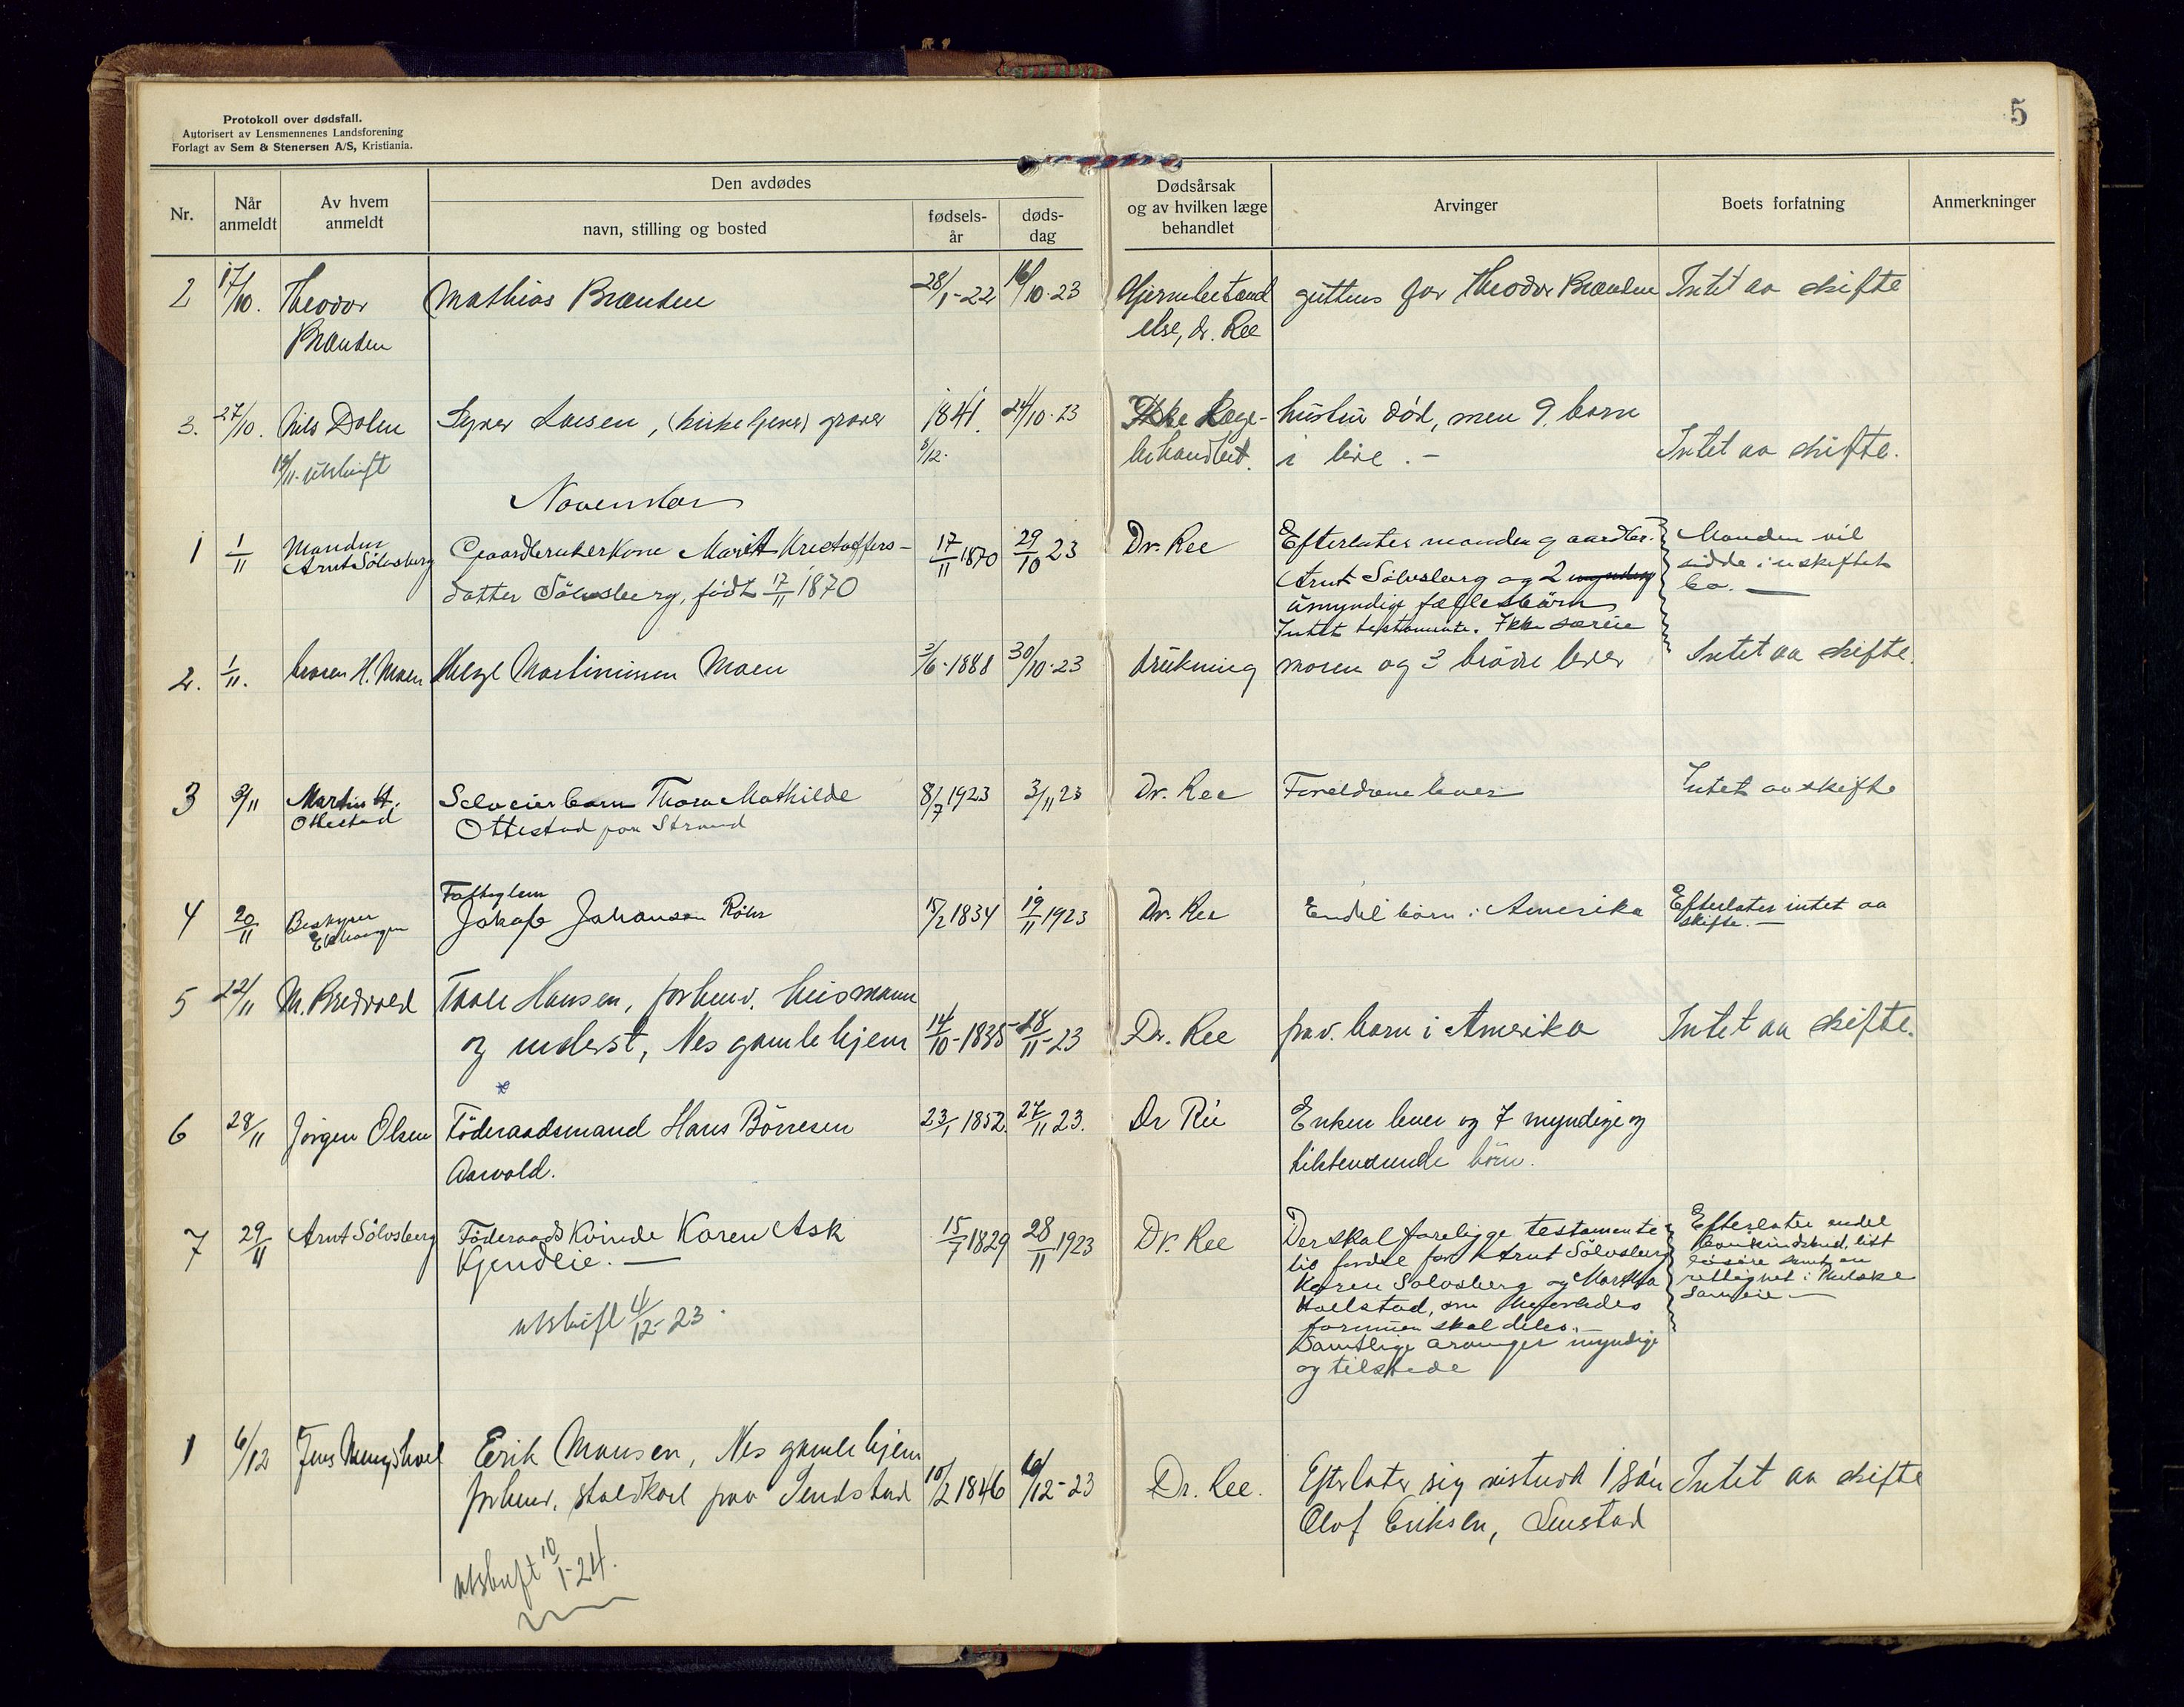 Protokoll over dødsfall.
Autorisert av Lensmennenes Landsforening
Forlagt av Sem & Stenersen A/S, Kristiania.
5
Nr.
Når anmeldt
Av hvem anmeldt
Den avdødes
navn, stilling og bosted
fødsels-år
døds-dag
Dødsårsak og av hvilken læge behandlet
Arvinger
Boets forfatning
Anmerkninger
2 17/10. Theodor Mathias Brænden 28/1-22 16/10-23 Hjernebetænd guttens far Theodor Brænden Intet aa skifte
Brænden else, dr. Ree
3. 27/10. Nils Dalen Syver Larsen, (kirketjener) graver 1841. 24/10-23 Ikke læge- hustru død, men 9 barn
8/12. behandlet. i live. - Intet aa skifte.
utskrift
November
1 1/11 Manden Gaardbrukerkone Marit Kristoffers- 17/11 1870 29/10 23 Dr. Ree Efterlater manden gaardbr. Manden vil
Arnt Sölvsberg datter Sölvsberg, födt 17/11 1870 Arnt Sölvsberg og 2 myndig sidde i uskiftet
umyndige fællesbörn bo. —
Intet testamente. Ikke særeie
2. 1/11. broren H. Moen Helge Martiniussen Moen 3/6-1888 30/10-23 drukning moren og 3 brødre lever Intet aa skifte.
3 3/11 Martin H. Selveierbarn Thora Mathilde 8/7 1923 3/11 23 Dr. Ree Foreldrene lever Intet aa skifte
Ottestad Ottestad paa Strand
4 20/11 Bestyrer Fattiglem
Jakob Johanson 15/2 1834 19/11 1923 Dr. Ree Endel börn i Amerika Efterlater intet aa
skifte. —
5 22/11 M. Bredvold Taale Hansen, forhenv. husmann
og inderst, Nes gamlehjem 14/10-1835 18/11-23 Dr. Ree barn i Amerika Intet aa skifte.
6 28/11 Jörgen Olsen Föderaadsmand Hans Börresen 23/1 1852. 27/11 23. Dr Ree Enken lever og 7 myndige og
Aarvold. tilstedværende börn.
7 29/11 Arnt Sölvsberg Föderaadskvinde Karen Ask 15/7 1829 28/11 1923 Dr. Ree Der skal foreligge testamente Efterlater endel
Kjendlie. — lig fordel for Arnt Sölvsberg litt
Karen Sölvsberg og Martha lösöre samt en
utskrift 4/12-23. Hoelstad, om rettighet i
formuen skal deles. - sameie —
Samtlige arvinger myndige
og tilstede
1 6/12 Jens Erik Monsen, Nes gamlehjem
forhenv. staldkarl paa Tendstad 10/2 1846 6/12-23 Dr. Ree. Efterlater sig 1 søn Intet aa skifte
Olof Eriksen,
utskrift 10/1-24.